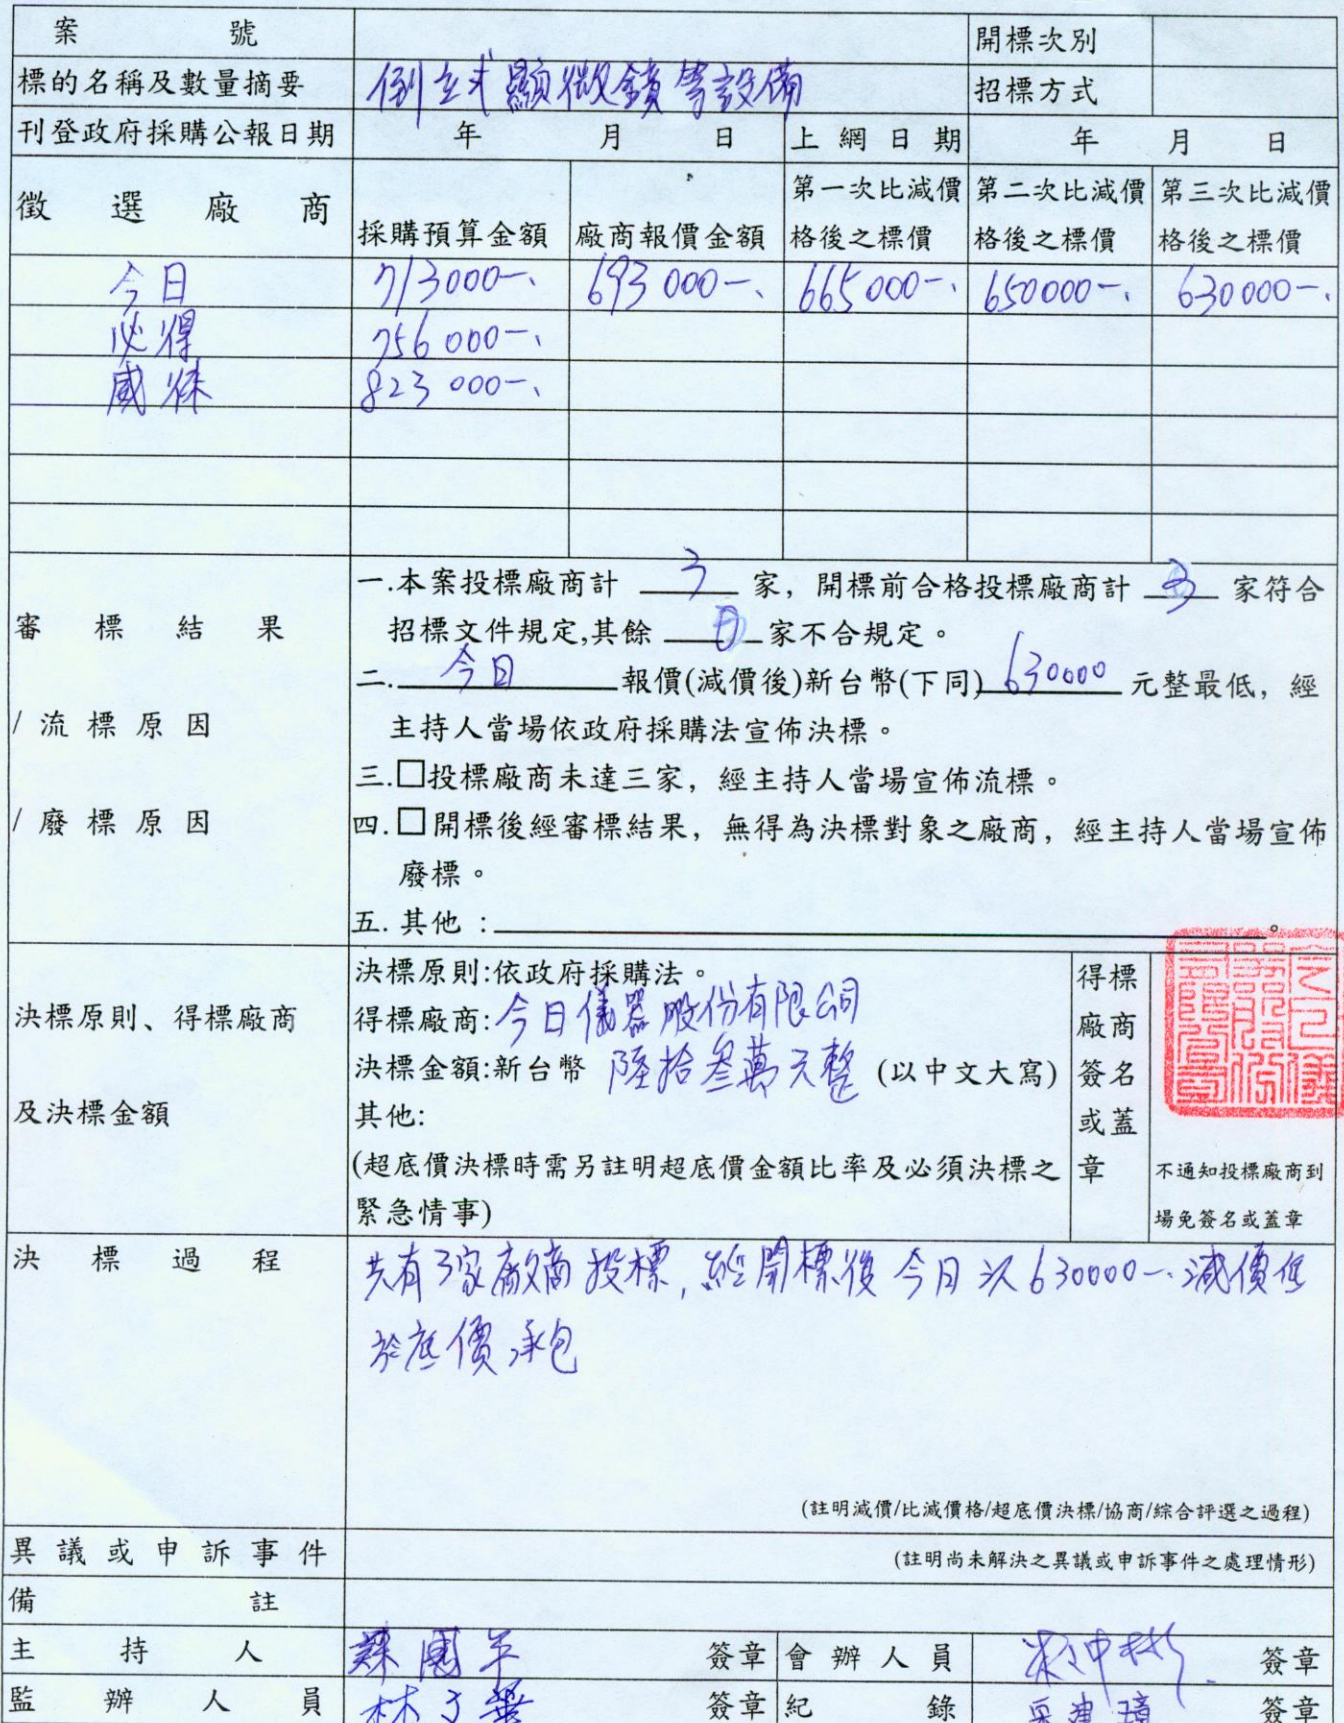 案 號 開標次別
標的名稱及數量摘要 倒立式顯微鏡等設備 招標方式
刊登政府採購公報日期 年 月 日 上網日期 年 月 日
徵選廠商 採購預算金額 廠商報價金額 第一次比減價格後之標價 第二次比減價格後之標價 第三次比減價格後之標價
今日 713000-、 693000-、 665000-、 650000-、 630000-、
必得 756000-、
威 823000-、
審標結果
/流標原因
/廢標原因
一.本案投標廠商計 3 家，開標前合格投標廠商計 3 家符合
招標文件規定,其餘 0 家不合規定。
二. 今日 報價(減價後)新台幣(下同) 630000 元整最低，經
主持人當場依政府採購法宣佈決標。
三.□投標廠商未達三家，經主持人當場宣佈流標。
四.□開標後經審標結果，無得為決標對象之廠商，經主持人當場宣佈
廢標。
五.其他：。
決標原則、得標廠商
及決標金額
決標原則:依政府採購法。
得標廠商:今日儀器股份有限公司
決標金額:新台幣 陸拾參萬元整 (以中文大寫)
其他:
(超底價決標時需另註明超底價金額比率及必須決標之
緊急情事)
得標
廠商
簽名
或蓋
章
不通知投標廠商到
場免簽名或蓋章
決標過程
共有3家廠商投標,經開標後今日以630000-、減價低
於底價承包
(註明減價/比減價格/超底價決標/協商/綜合評選之過程)
異議或申訴事件 (註明尚未解決之異議或申訴事件之處理情形)
備註
主持人 簽章 會辦人員 簽章
監辦人員 林 簽章 紀錄 簽章